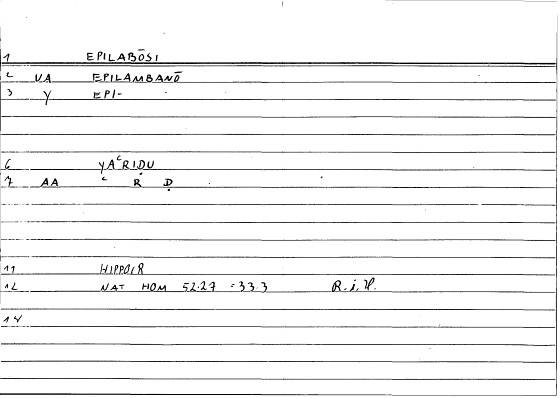 1 EPILABŌSI
2 VA EPILAMBANŌ
3 Y EPI-
6 YAʿRIḌU
7 AA ʿ R Ḍ
11 HIPPOCR
12 NAT HOM 52.27 = 33.3 R.i.P.
14